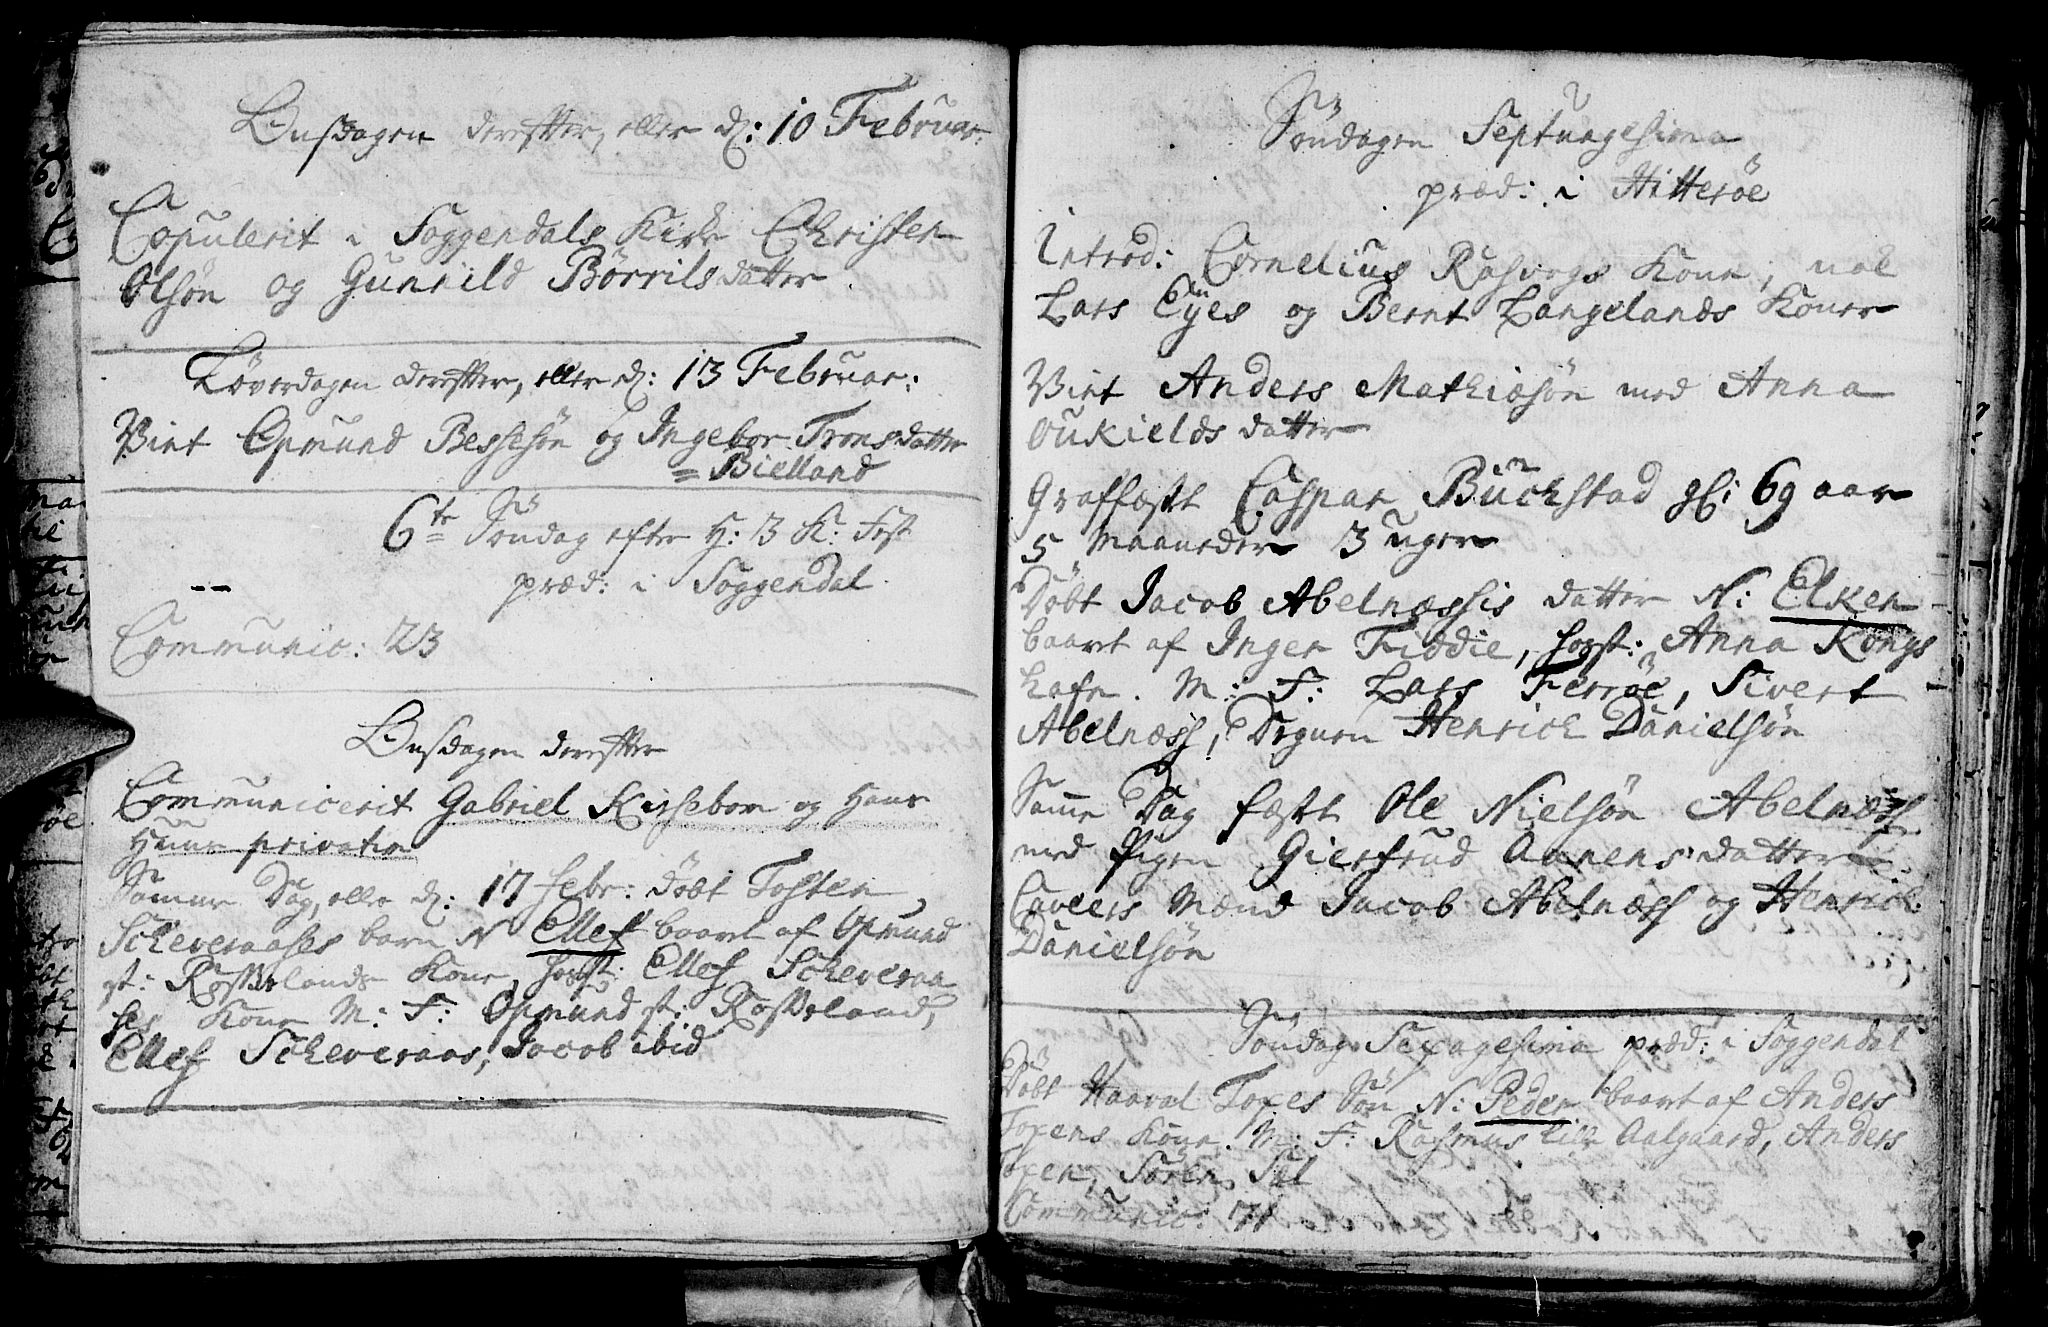 Onsdagen derefter, eller d: 10 Februar:
Copulerit i Soggendals Kirke Christen
Olsøn og Gunnild Børrilsdatter
Løverdagen derefter, eller d: 13 Februar:
Viet Omund Bessesøn og Ingebor Tronsdatter
= Bielland
6te Søndag efter H: 3 K: Fest
præd: i Soggendal
Communic: 23
Onsdagen derefter
Communicerit Gabriel Kirsebom og Hans
Huus privatim
Samme Dag, eller d: 17 febr: døbt Tosten
Scheveraases barn N Ellef baaret af Omund
st: Rosselands Kone, hosst: Ellef Scheveraa
ses Kone M: F: Omund st: Rosseland,
Ellef Scheveraas, Jacob ibid
Søndagen Septuagesima
præd: i Hitterøe
Introd: Cornelius Rasvogs Kone, nol
Lars Eÿes og Bernt Langelands Koner
Viet Anders Mathiæsøn med Anna
Oukields datter
Graffæstt Caspar Büchstad gl: 69 aar
5 Maaneder 3 uger
Døbt Jacob Abelnæssis datter N: Elken
baaret af Inger Fidie, hosst: Anna Kongs
hafn. M: F: Lars Ferrøe, Sivert
Abelnæss, Degnen Henrich Danielsøn
Samme Dag fæstt Ole Nielsøn Abelnæss
med Pigen Giertrud Aanensdatter
Caveers Mænd Jacob Abelnæss og Henrich
Danielsøn
Søndag Sexagesima præd: i Soggendal
Døbt Haaval Toxes Søn N: Peder baaret af Anders
Toxens Kone. M: F: Rasmus lille Aalgaard, Anders
Toxen, Søren Sel
Communic: 71